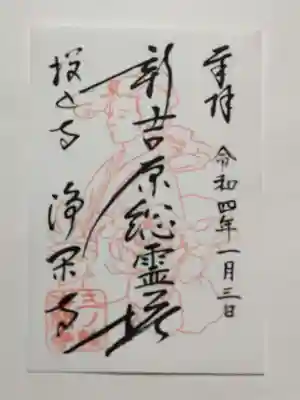 奉拝
令和四年一月三日
新吉原総霊塔
投込寺
浄閑寺